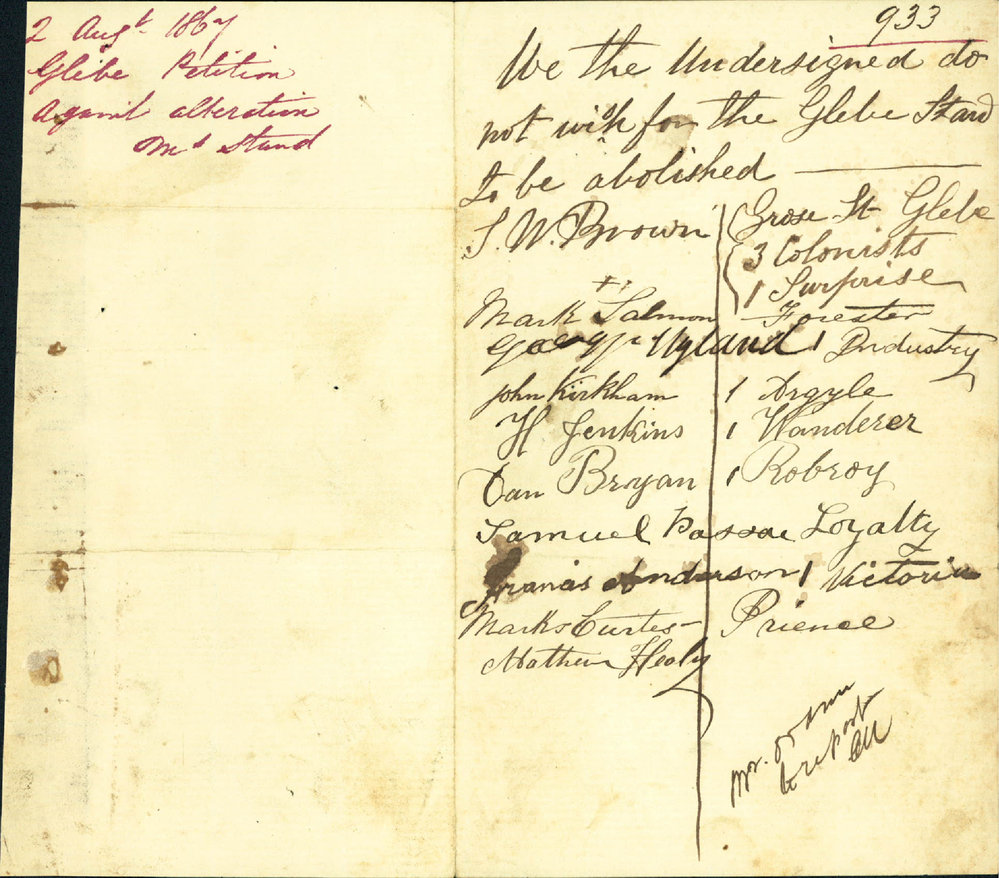 2 Augt. 1867
Glebe Petition
against alteration
in Stand
933
We the Undersigned do
not wish for the Glebe Stand
to be abolished
S. W. Brown Grose St Glebe
3 Colonists
1 Surprise
Mark Salmon Forester
George Hyland 1 Industry
John Kirkham 1 Argyle
H Jenkins 1 Wanderer
Dan Bryan 1 Robroy
Samuel Loyalty
Francis Anderson 1 Victoria
Marks Curtes - Prience
Mathew Healy
Mr.
to report